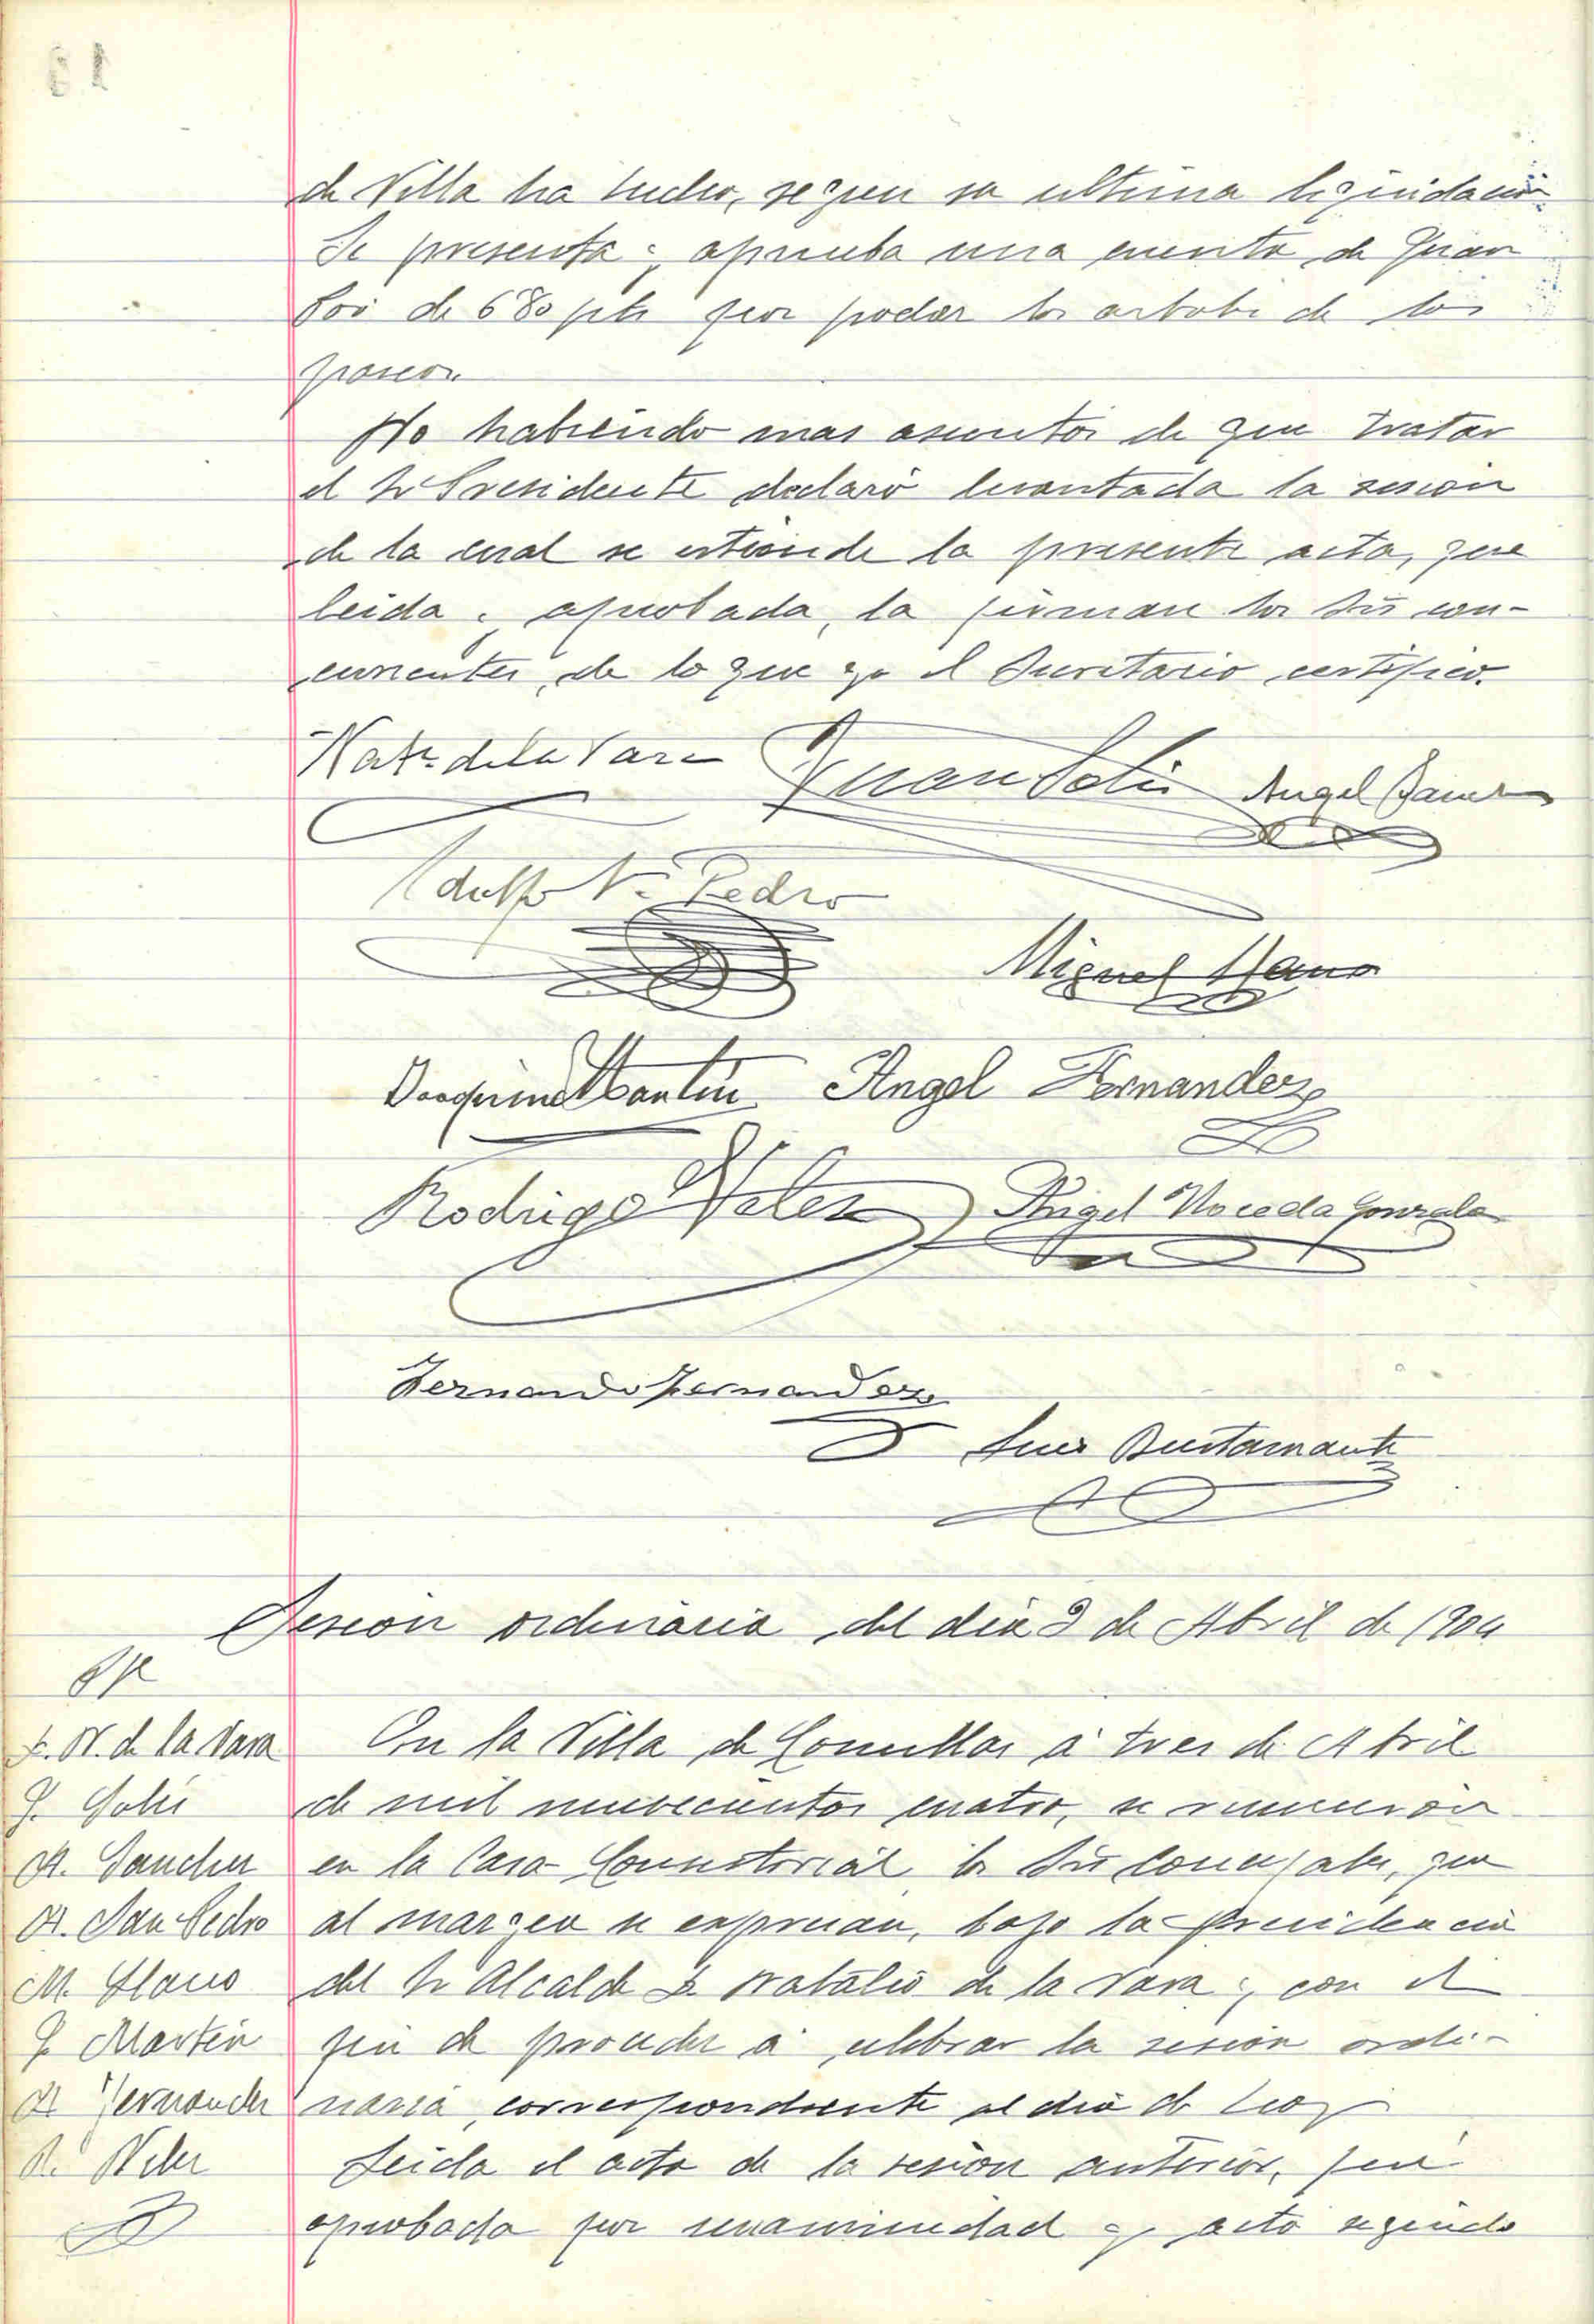 de Villa ha hecho, segun su ultima liquidación.
Se presenta y aprueba una cuenta de Juan
Soi de 680 pts por podar los arboles de los
paseos.
No habiendo mas asuntos de que tratar
el Sr Presidente declaró levantada la sesion
de la cual se extiende la presente acta, que
leida y aprobada, la firman los Srs con-
currentes, de lo que yo el Secretario certifico.
Nat. de la Vara Juan Solis Angel
Adolfo S. Pedro
Miguel Llano
Joaquin Martin Angel Fernandez
Rodrigo Velez Angel Noceda Gonzalez
Fernando Fernandez
Bustamante
Sesion ordinaria del dia 3 de Abril de 1904
N. de la Vara
J. Solis
A. Sanchez
A. San Pedro
M. Llano
J. Martin
A. Fernandez
R. Velez
En la Villa de Comillas á tres de Abril
de mil novecientos cuatro, se reunieron
en la Casa Consistorial los Srs Concejales, que
al margen se expresan, bajo la Presidencia
del Sr Alcalde D. Natalio de la Vara y con el
fin de proceder á celebrar la sesion ordi-
naria correspondiente al dia de hoy
Leida el acta de la sesion anterior, fué
aprobada por unanimidad y acto seguido